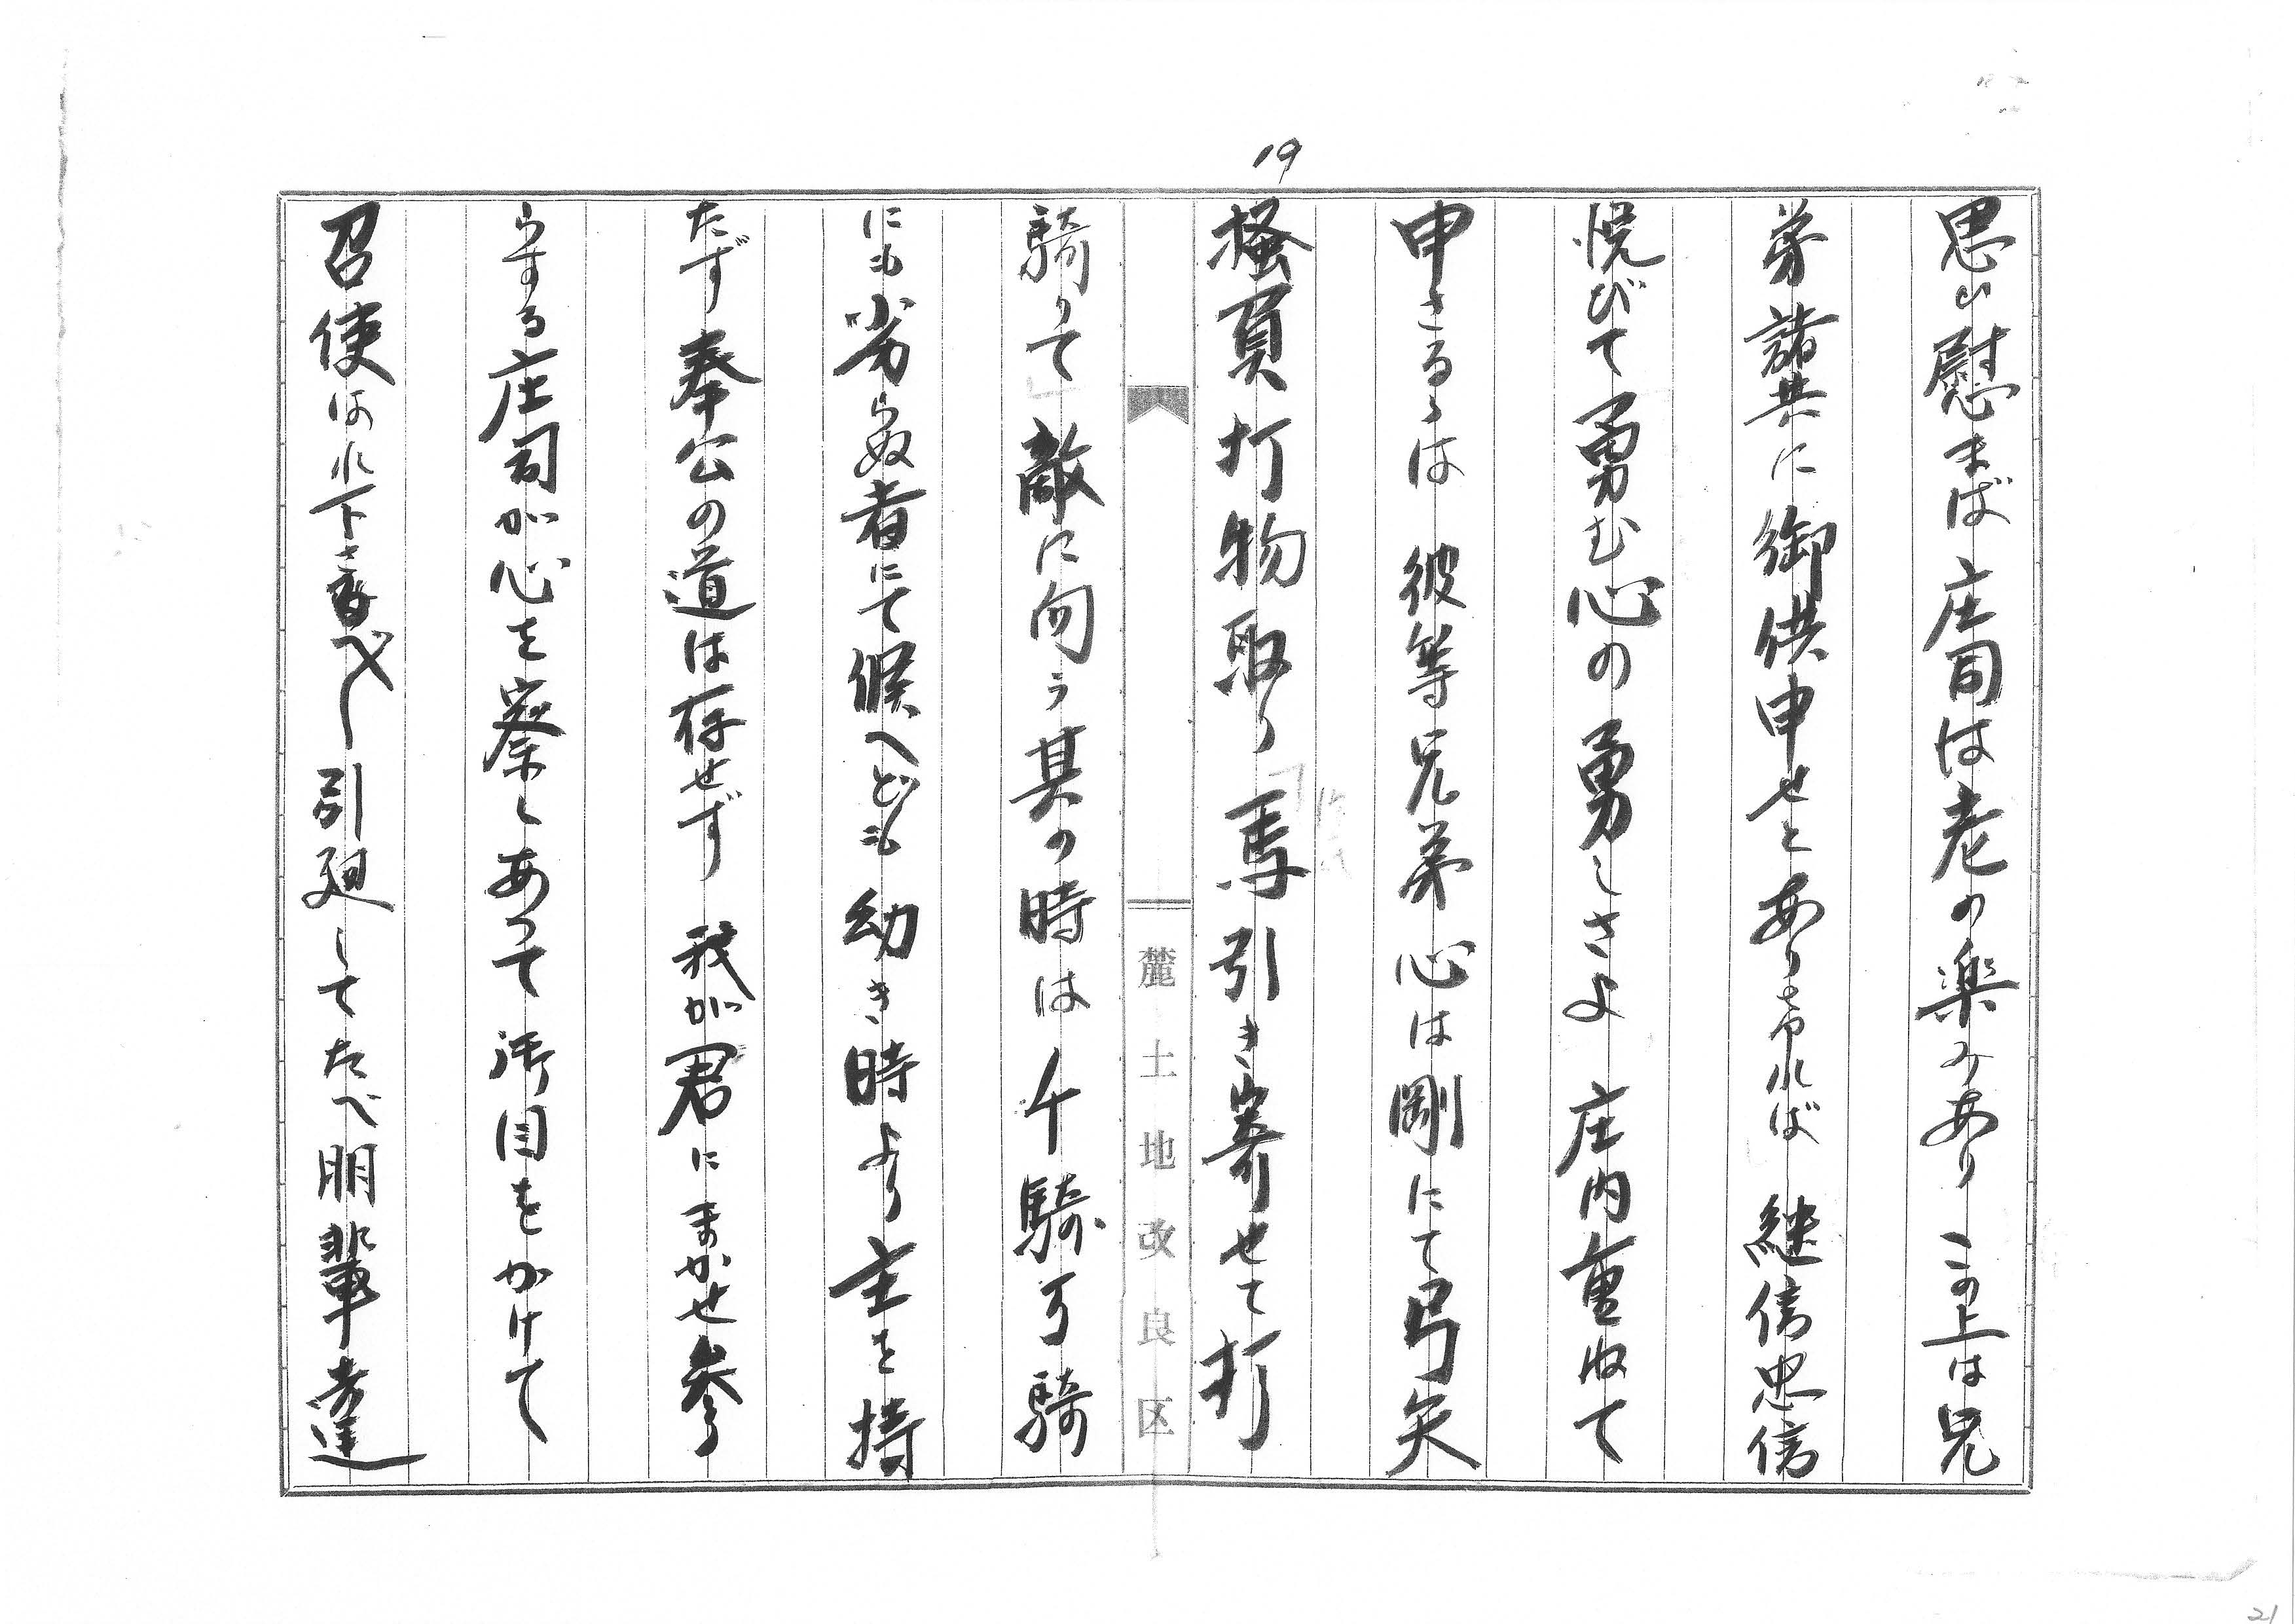 19
思い慰まば庄司は老の楽みありこの上は兄
弟諸共に御供申せとありければ 継信忠信
悦びて勇む心の勇しさよ 庄内重ねて
申さるゝは 彼等兄弟心は剛にて弓矢
掻負打物取り馬引き寄せて打
騎りて敵に向う其の時は千騎万騎
にも劣らぬ者にて候へども幼き時より主を持
たず奉公の道は存せず 我が君にまかせ参
らする庄司が心を察しあって御目をかけて
召使はれ下さるべし引廻してたべ朋輩達
麓土地改良区
21